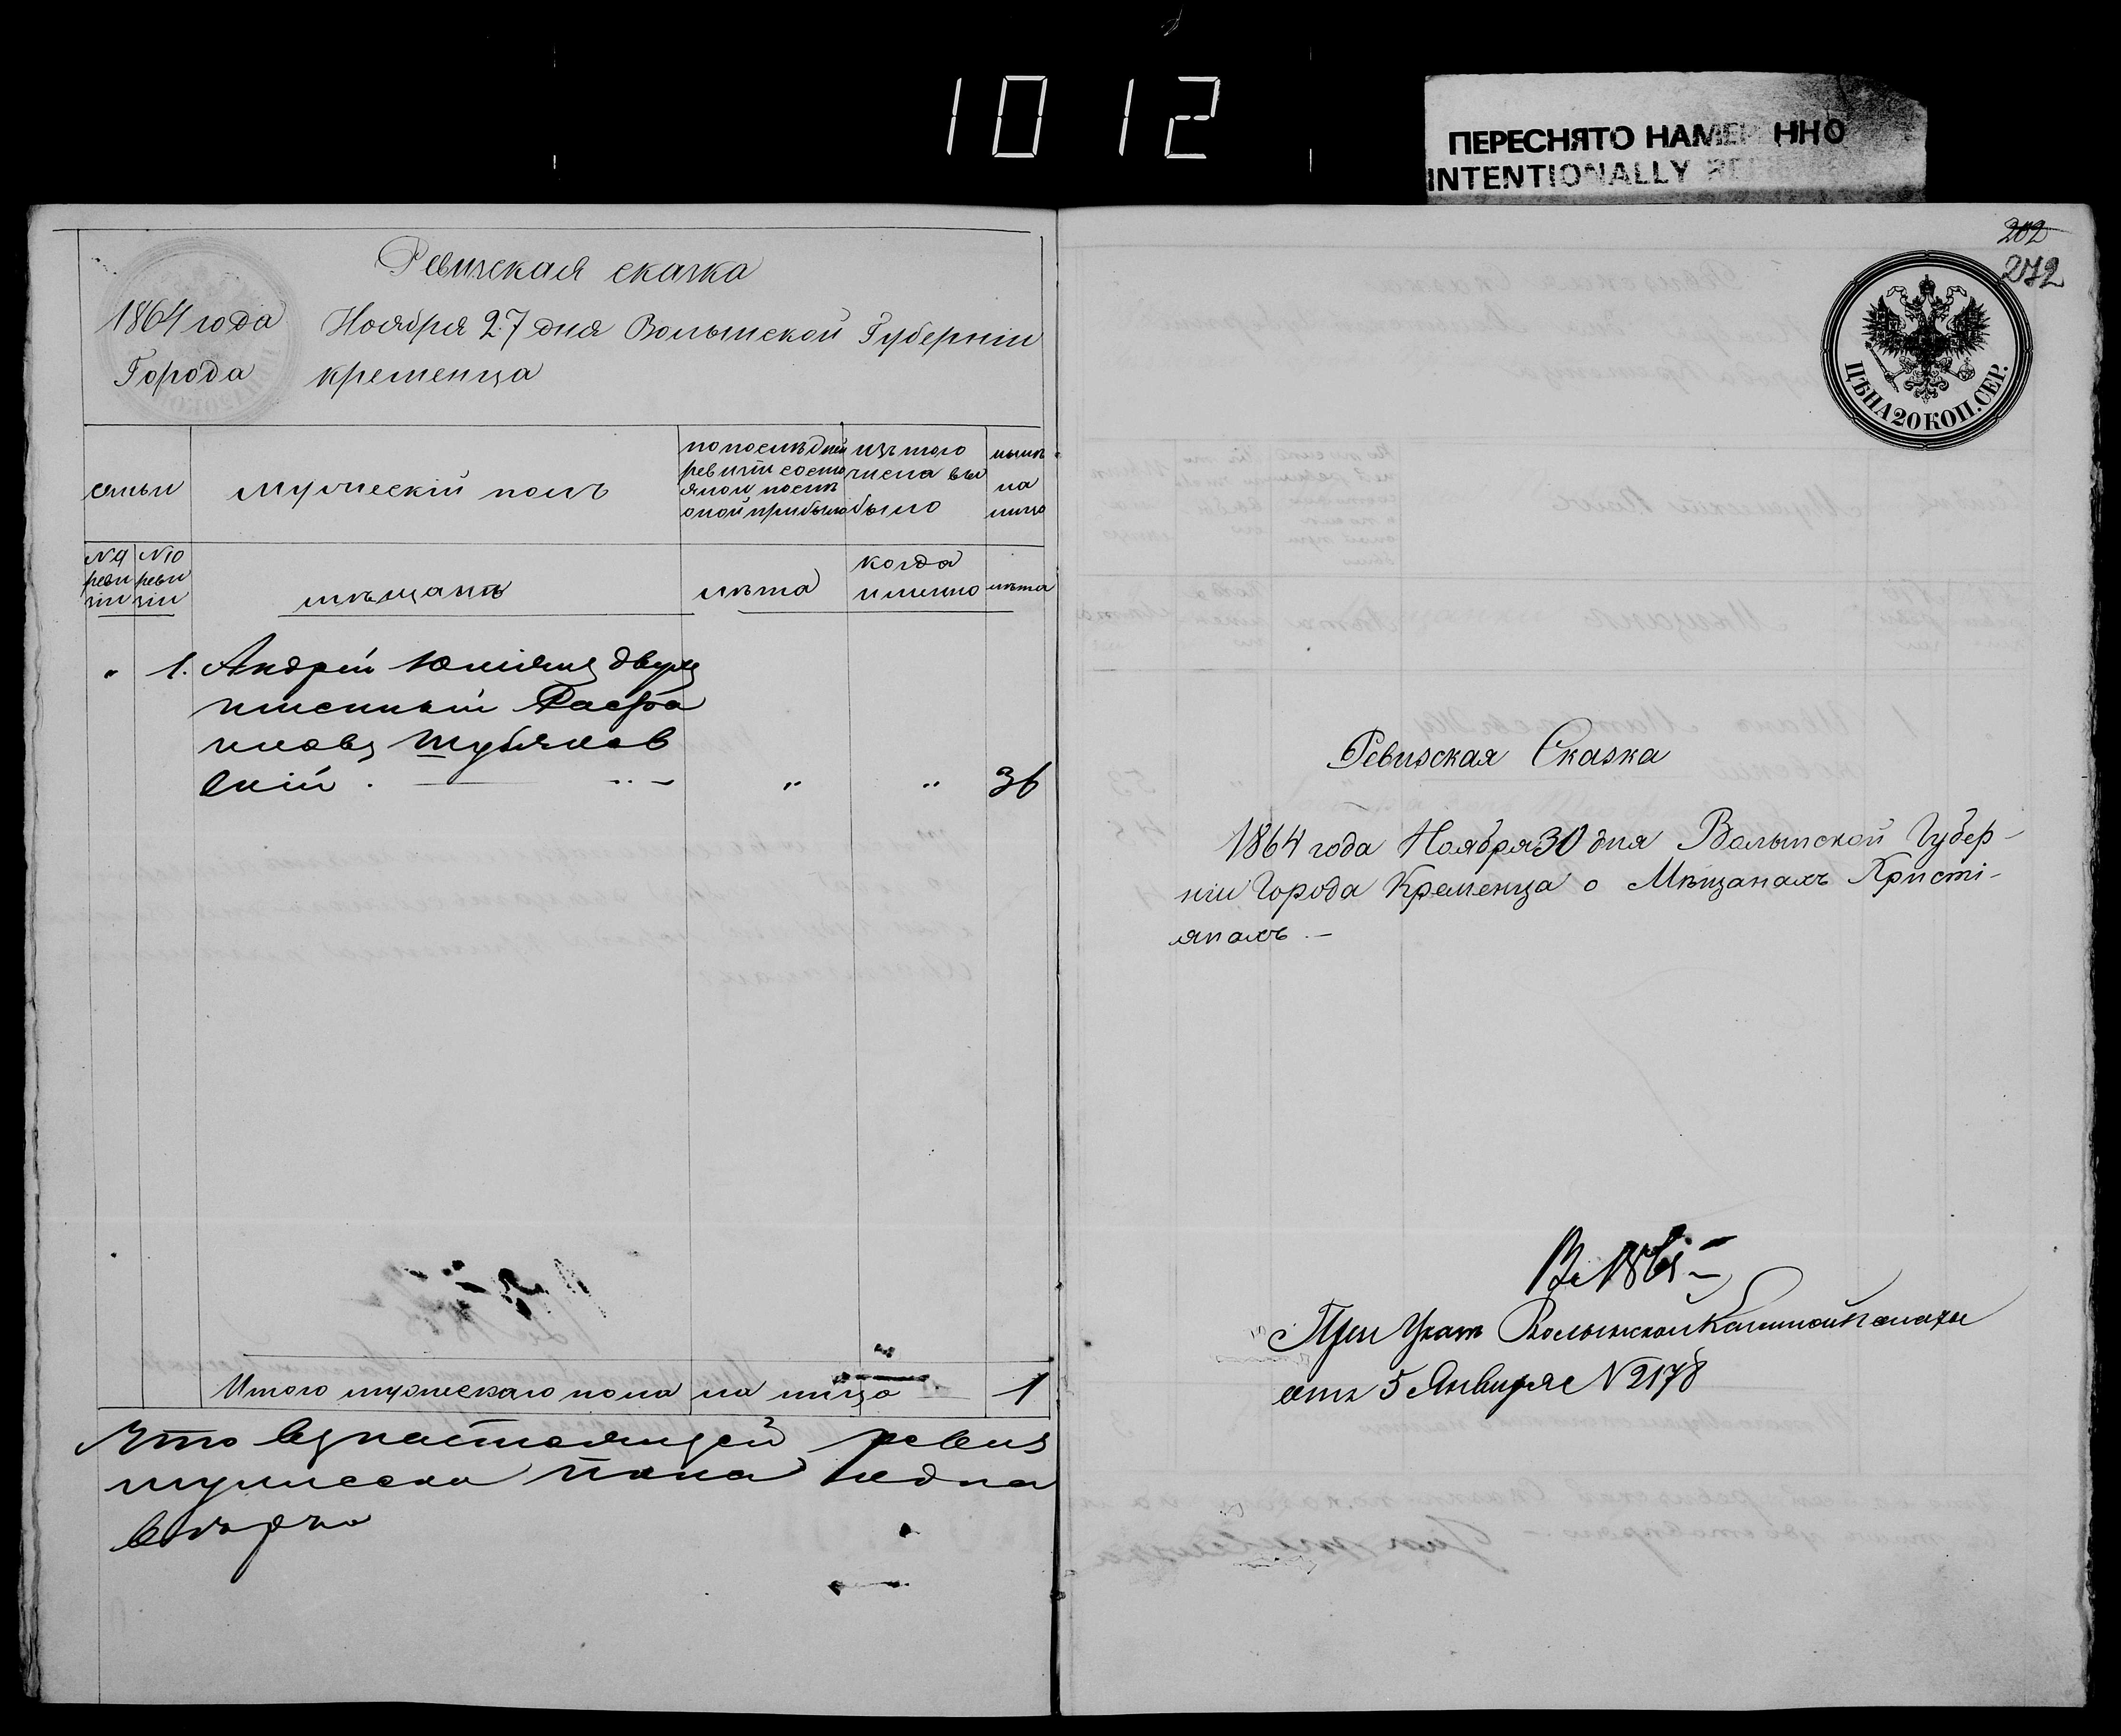 1012
ПЕРЕСНЯТО НАМЕР ННО
INTENTIONALLY
Ревизская сказка
1864 года Ноября 27 дня Волынской Губерніи
Города кременца
семьи
мужескій полъ
по последней
ревизіи состо
яло и после
оной прибыло
изъ того
числа вы
было
ныне
на
лицо
N 9
реви
зіи
N 10
реви
зіи
мещанъ
лета
когда
именно
лета
" 1. Андрей двух
именный
новъ
скій . " " 36
Итого мужескаго пола на лицо 1
Что въ настоящей
мужеска пола одна
верно
202
272
ЦѢНА 20 КОП. СЕР.
Ревизская Сказка
1864 года Ноября 30 дня Волынской Губер-
ніи Города Кременца о Мѣщанахъ Христі-
янахъ. —
При Указе Волынской Казенной Палаты
отъ 5 Января N 2178